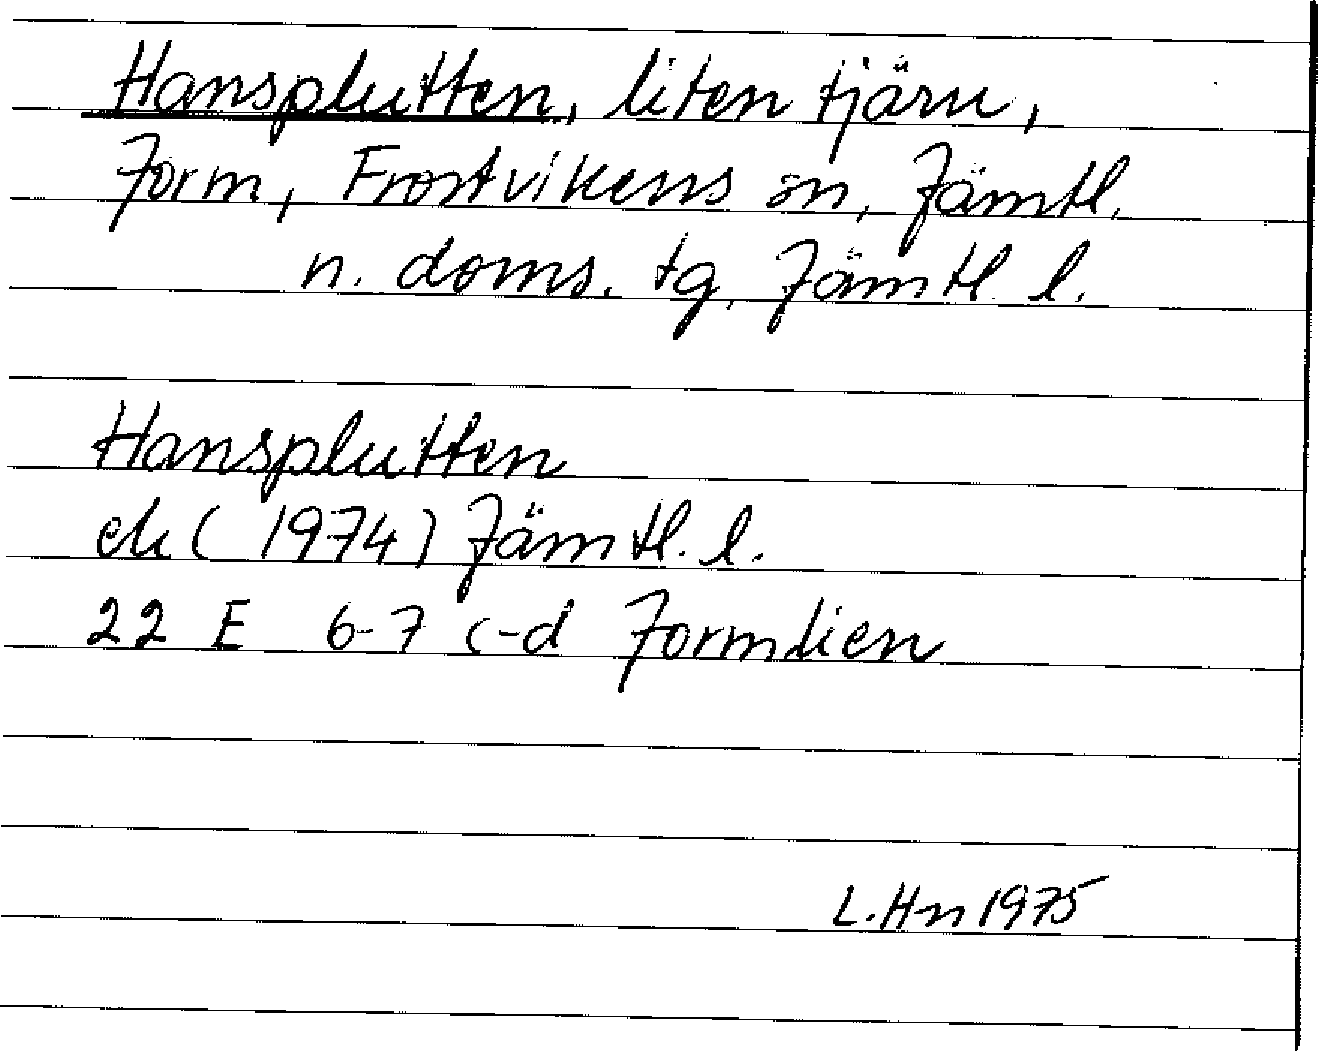 Hansplutten, liten tjärn,
Jorm, Frostvikens sn, Jämtl.
n. doms. tg, Jämtl. l.
Hansplutten
ek (1974) Jämtl. l.
22 E 6-7 c-d Jormlien
L. Hn 1975